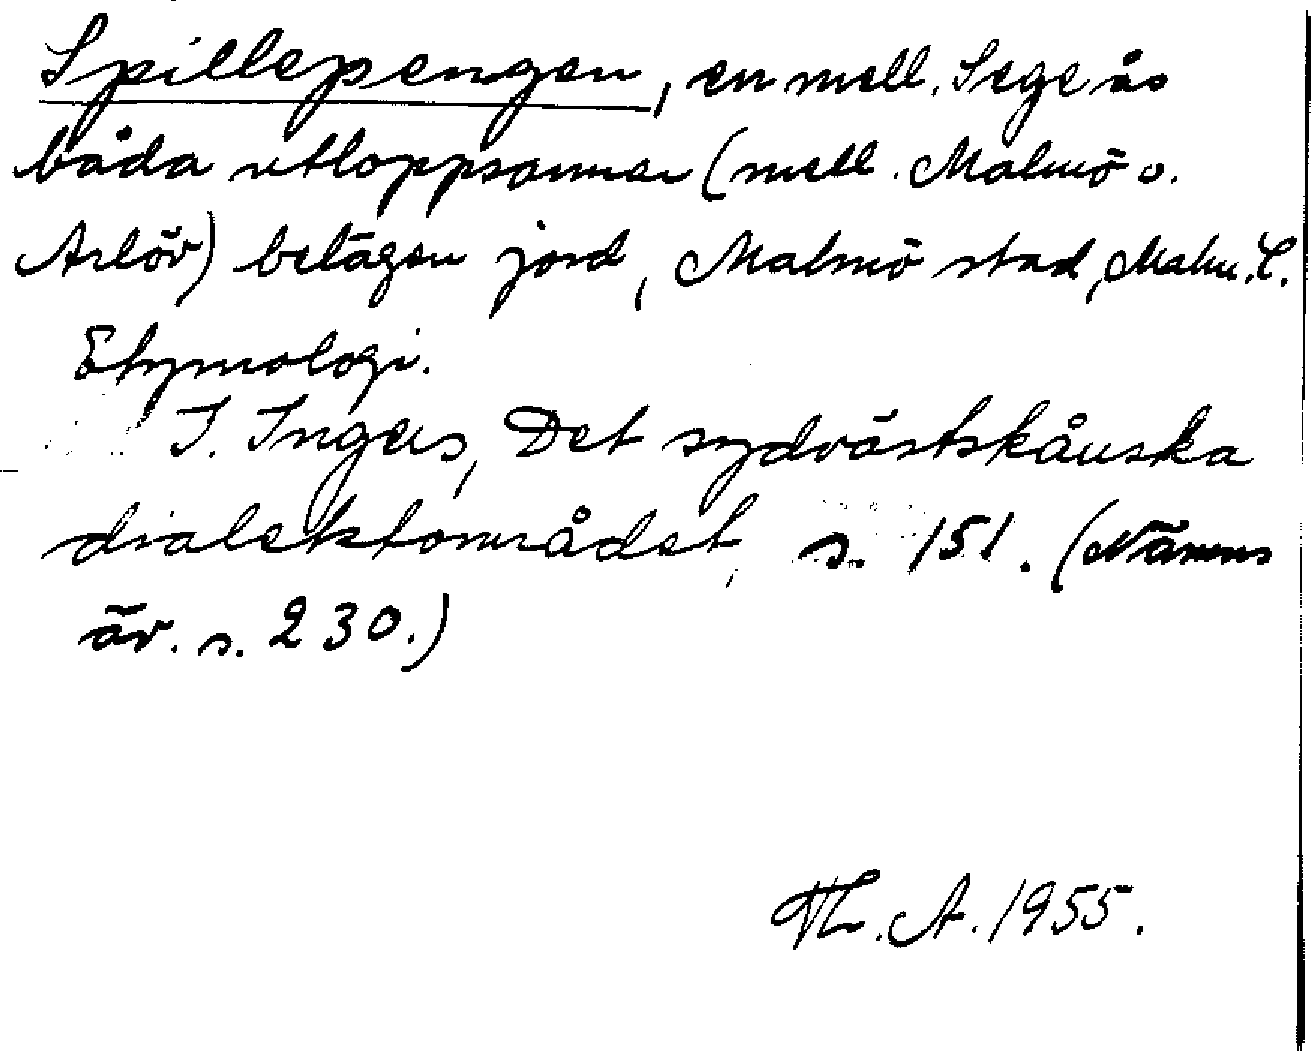 Spillepengen, en mell. Sege ås
båda utloppsarmar (mell. Malmö o.
Arlöv) belägen jord, Malmö stad, Malm. L.
Etymologi.
I. Ingers, Det sydvästskånska
dialektområdet, s. 151. (Nämns
äv. s. 230.)
Th. A. 1955.